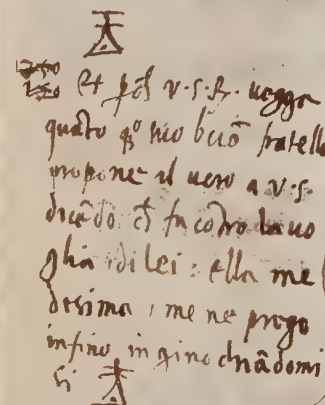 Et v.s.R. uegga
quāto q̄o mio buō fratello
propone il uero a v.s.
dicēdo cħ fu cōtro la uo
glia di lei : ella me
desima, me ne prego
infino in gino chiādomi
si